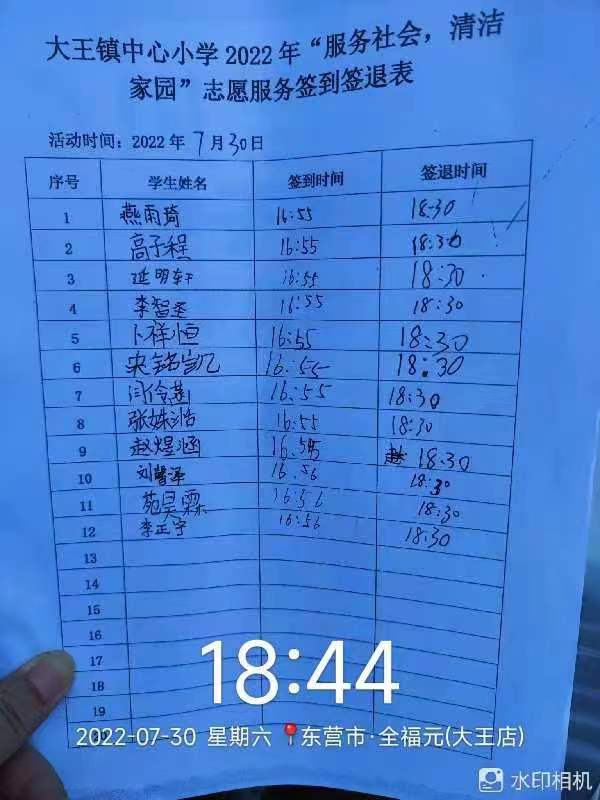 大王镇中心小学 2022 年“服务社会，清洁
家园”志愿服务签到签退表
活动时间：2022 年 7 月 30 日
序号 学生姓名 签到时间 签退时间
1 燕雨琦 16:55 18:30
2 高子程 16:55 18:30
3 延明轩 16:55 18:30
4 李智圣 16:55 18:30
5 卜祥恒 16:55 18:30
6 16:55 18:30
7 闫伶菡 16:55 18:30
8 张姝浩 16:55 18:30
9 赵煜涵 16. 18:30
10 刘馨泽 16.56 18:30
11 苑昊霖 16:56 18:30
12 李正宇 16:56 18:30
13
14
15
16
17
18
19
18:44
2022-07-30 星期六 东营市·全福元(大王店)
水印相机